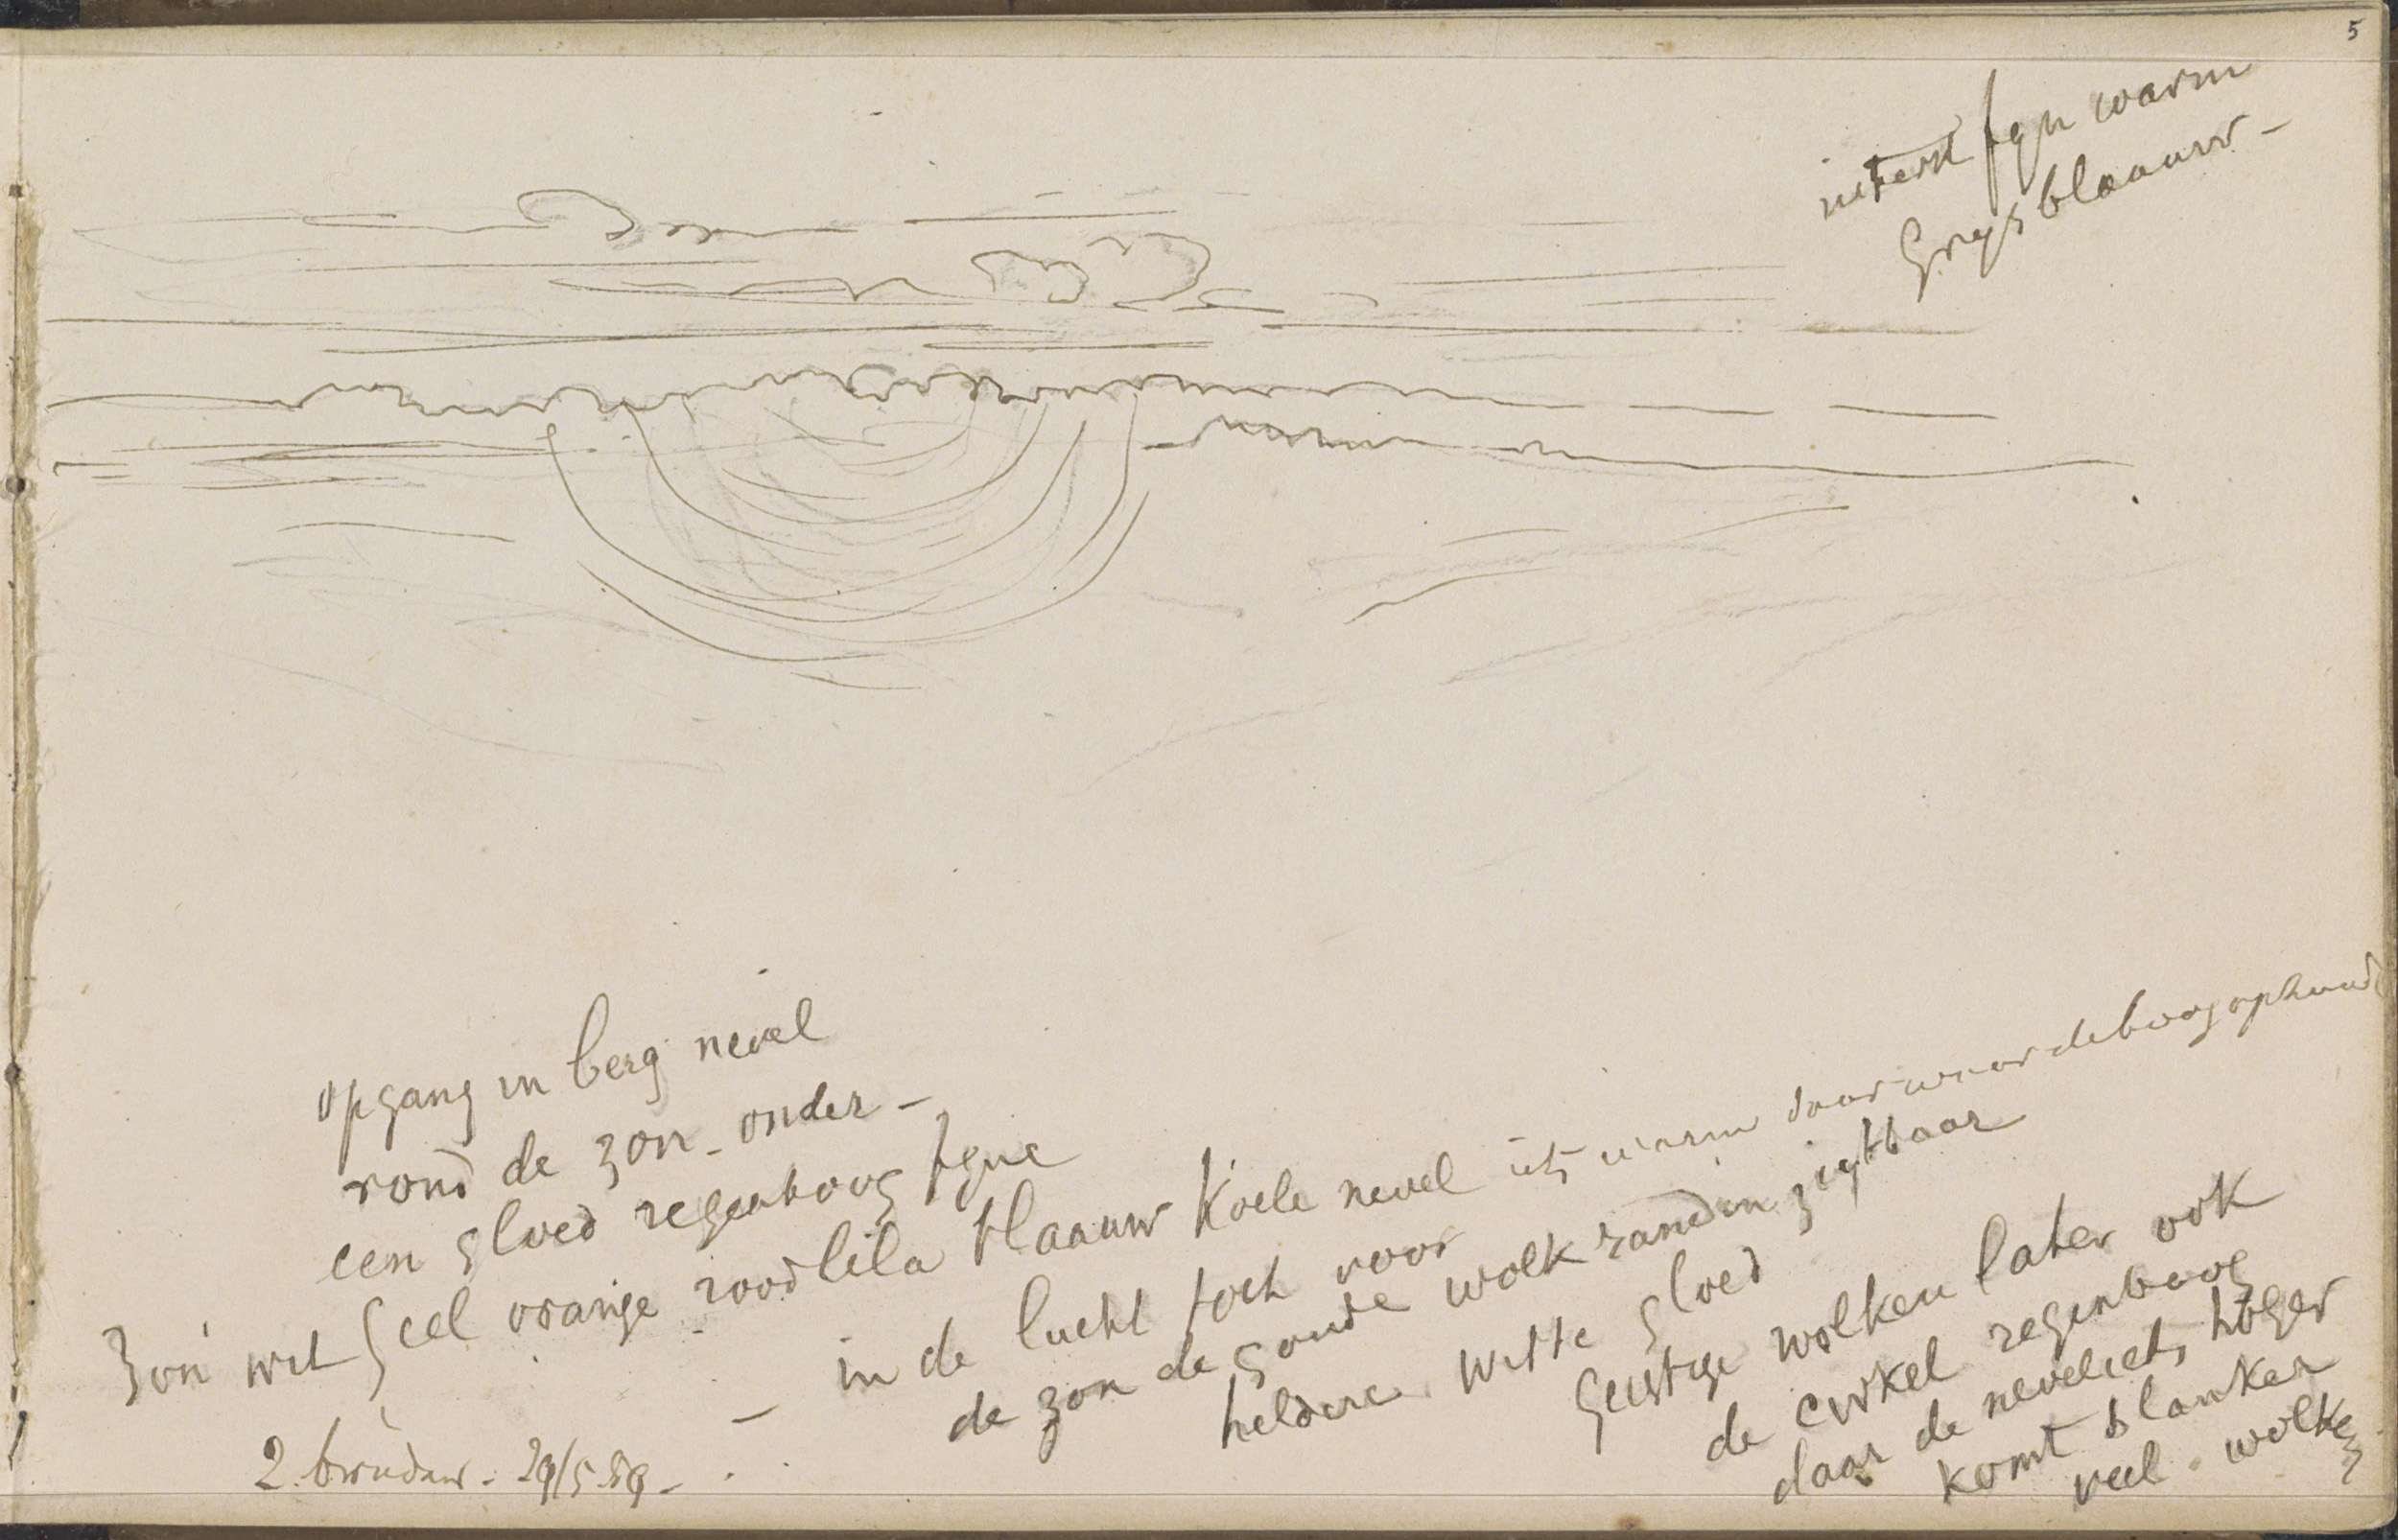 5
uiterst fyn warm
Grys blaauw -
opgang in berg nevel
rond de zon - onder -
een gloed regenboog fyne
Zon wit geel oranje rood lila blaauw koele nevel iets warm daar waar de boog ophoud
- in de lucht toch voor
de zon de goude wolk randen zigtbaar
heldere witte gloed
Geestige wolken later ook
de cirkel regenboog
daar de nevel iets hoger
komt blanker
veel wolken
2. 29/5.59 -